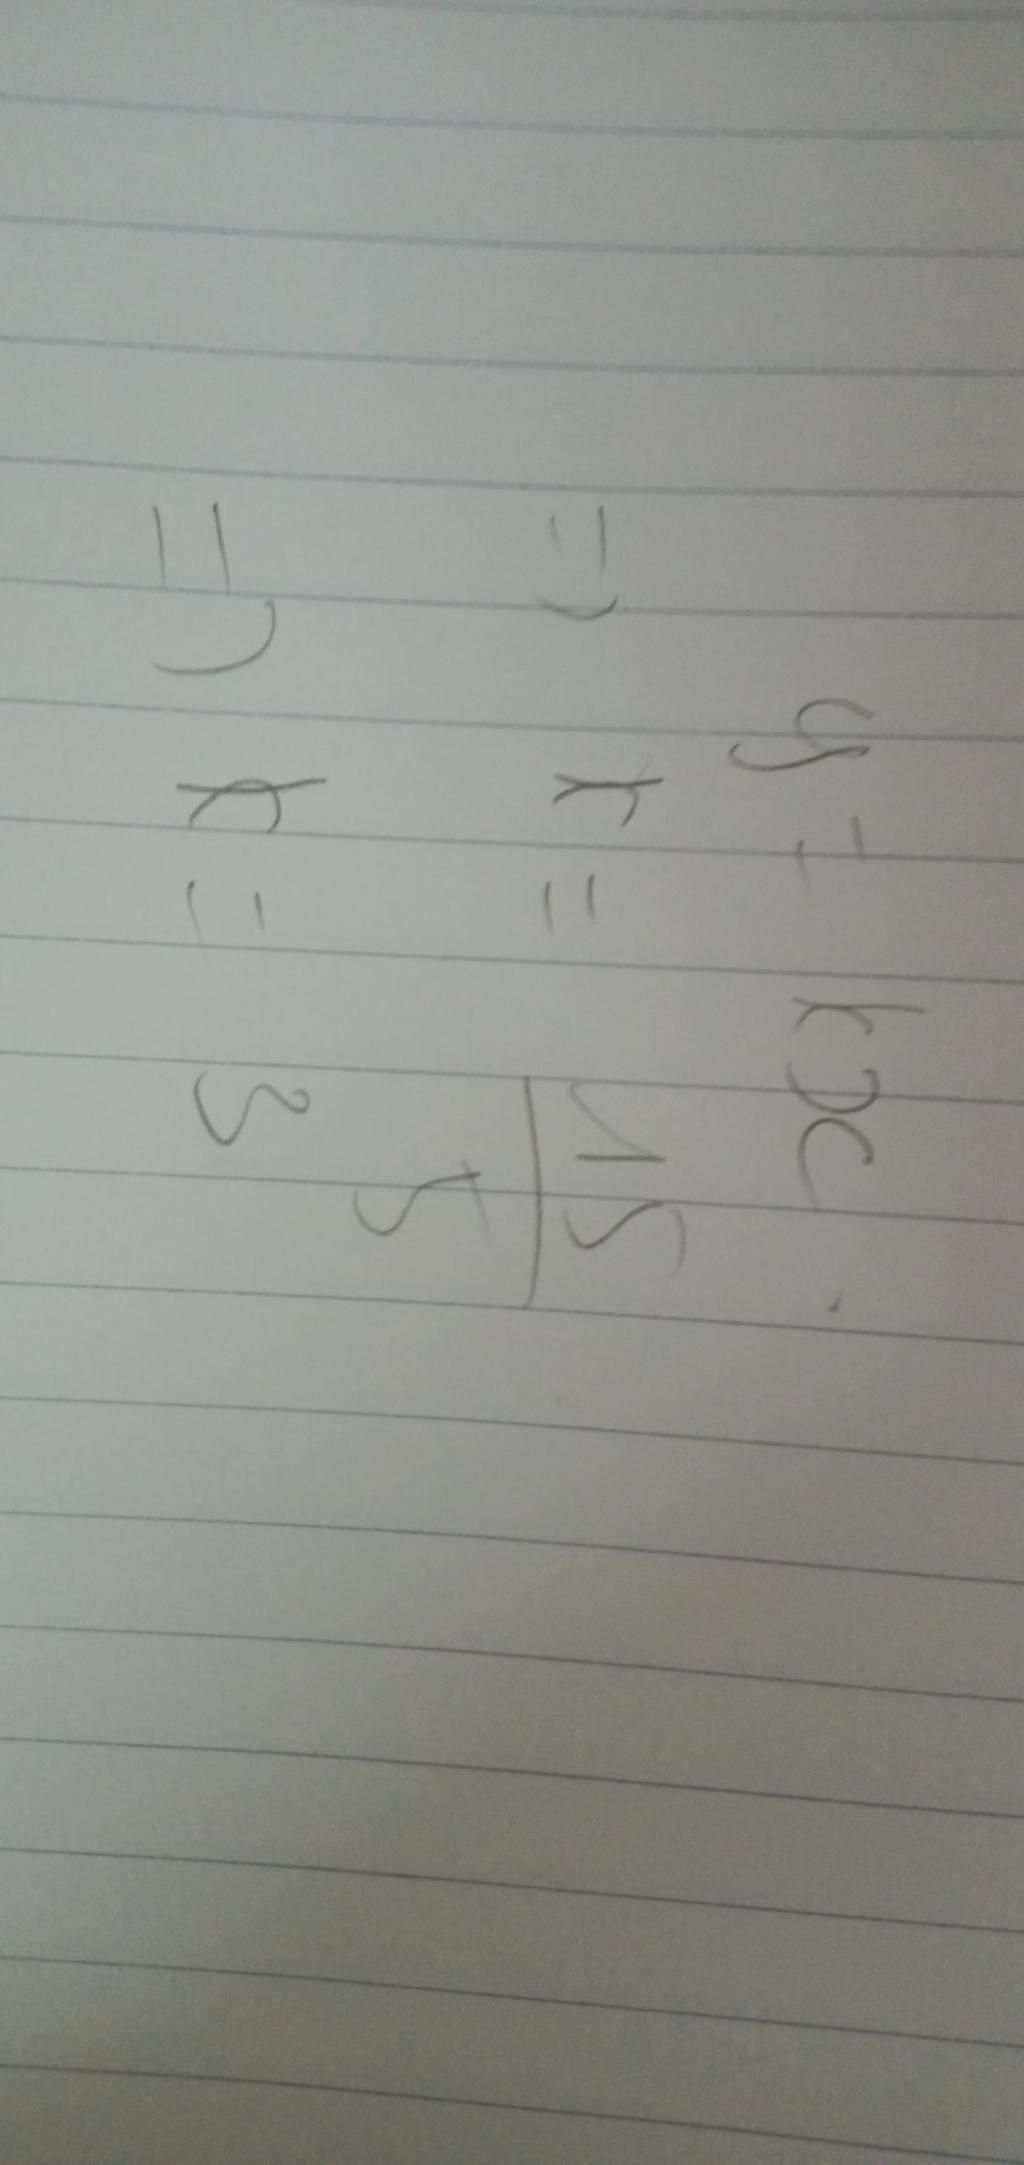 y = kx
=) k = 15
5
=) k = 3